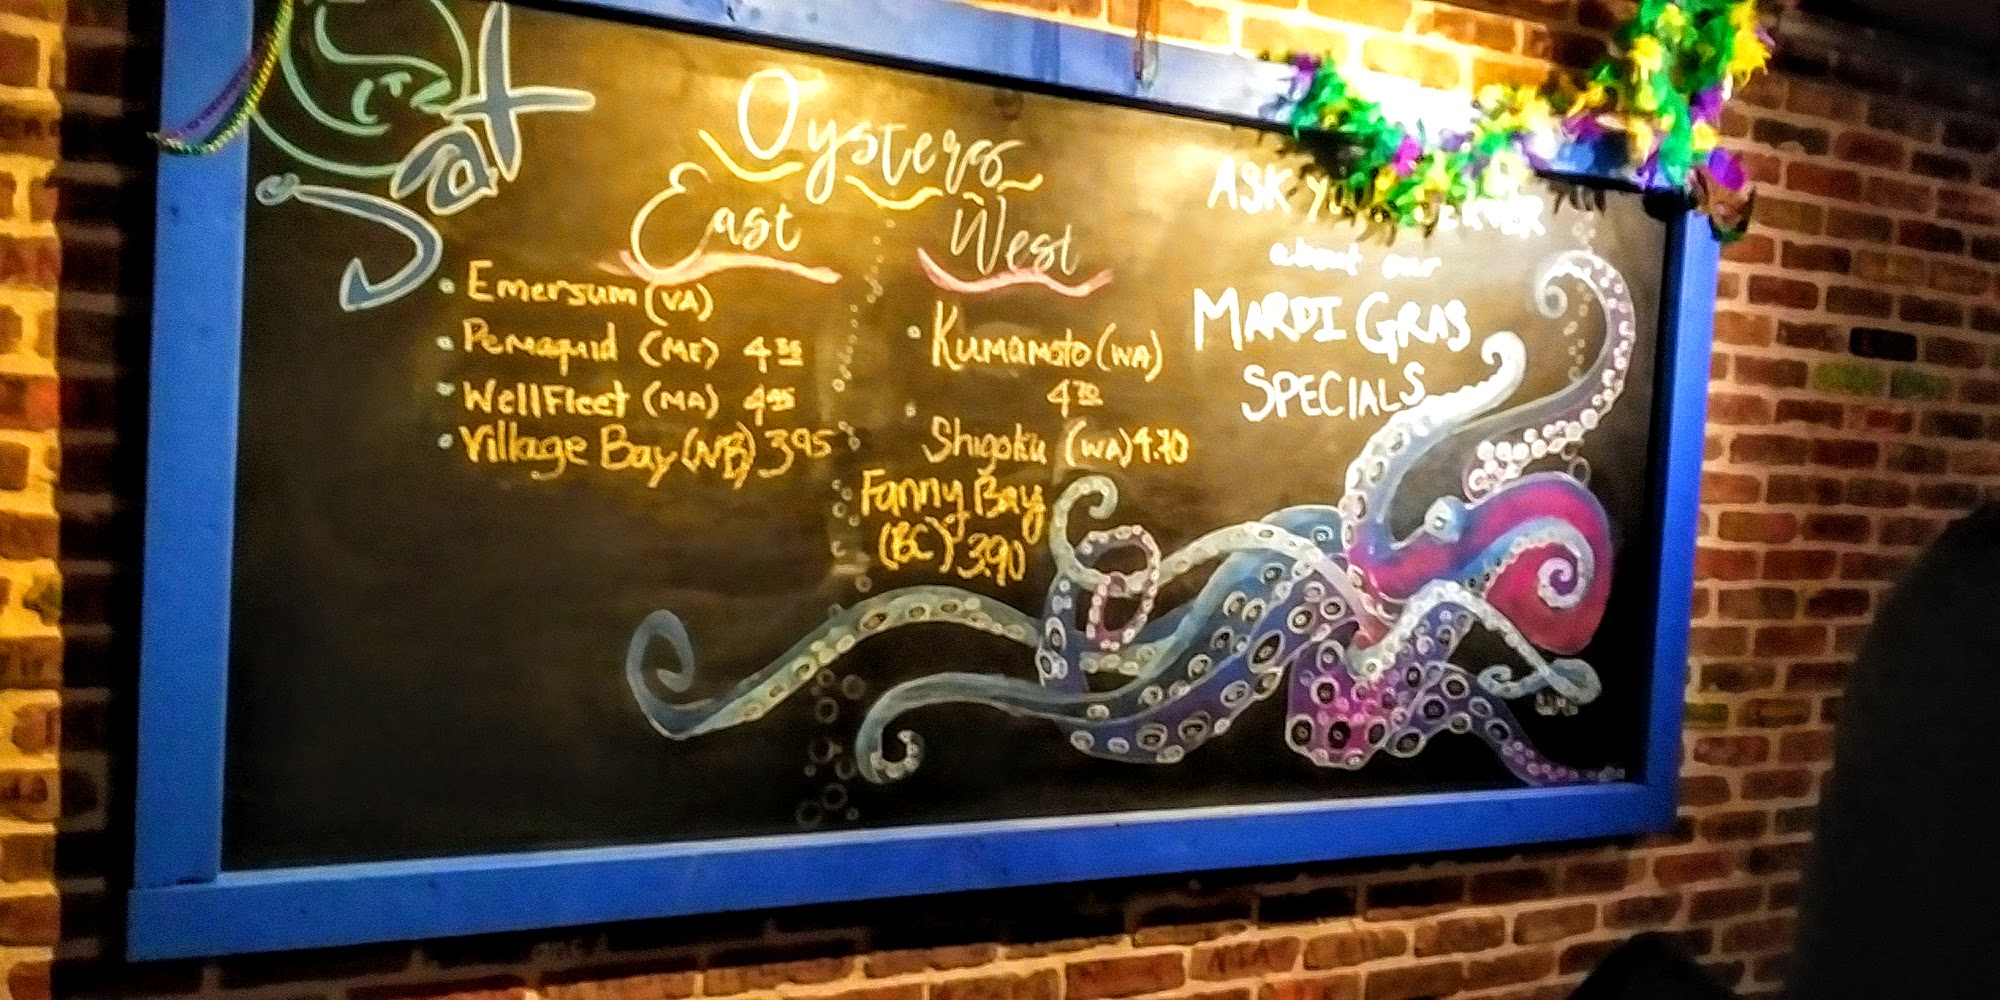 Salt
Oysters
East
• Emersum (VA)
• Pemaquid (ME) 4
• WellFleet (MA) 4
• Village Bay (NB) 3.95
West
• Kumamoto (WA)
4
Shigoku (WA) 4.70
Fanny Bay
(BC) 3.90
ASK
about our
MARDI GRAS
SPECIALS